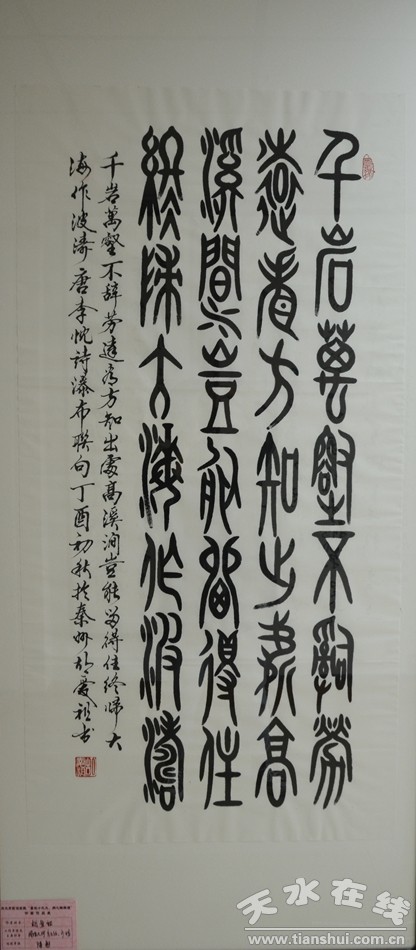 千岩萬壑不辭勞
遠看方知出處高
溪澗豈能留得住
終歸大海作波濤
千岩萬壑不辭勞遠看方知出處高溪澗豈能留得住終歸大
海作波濤唐李忱詩瀑布聯句丁酉初秋於秦州愛祖書
天水在线
www.tianshui.com.cn